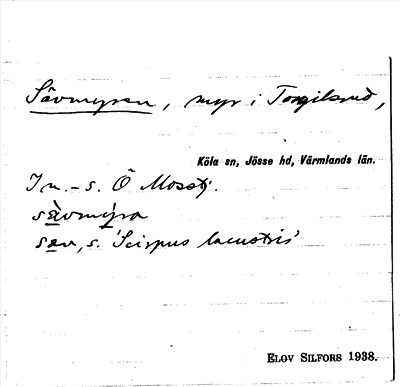 Sävmyren, myr i Torgilsrud,
Köla sn, Jösse hd, Värmlands län.
I n.-s. Ö Mosstj.
sæ̀vmýra
sæv, s. 'Scirpus lacustris'
ELOV SILFORS 1938.